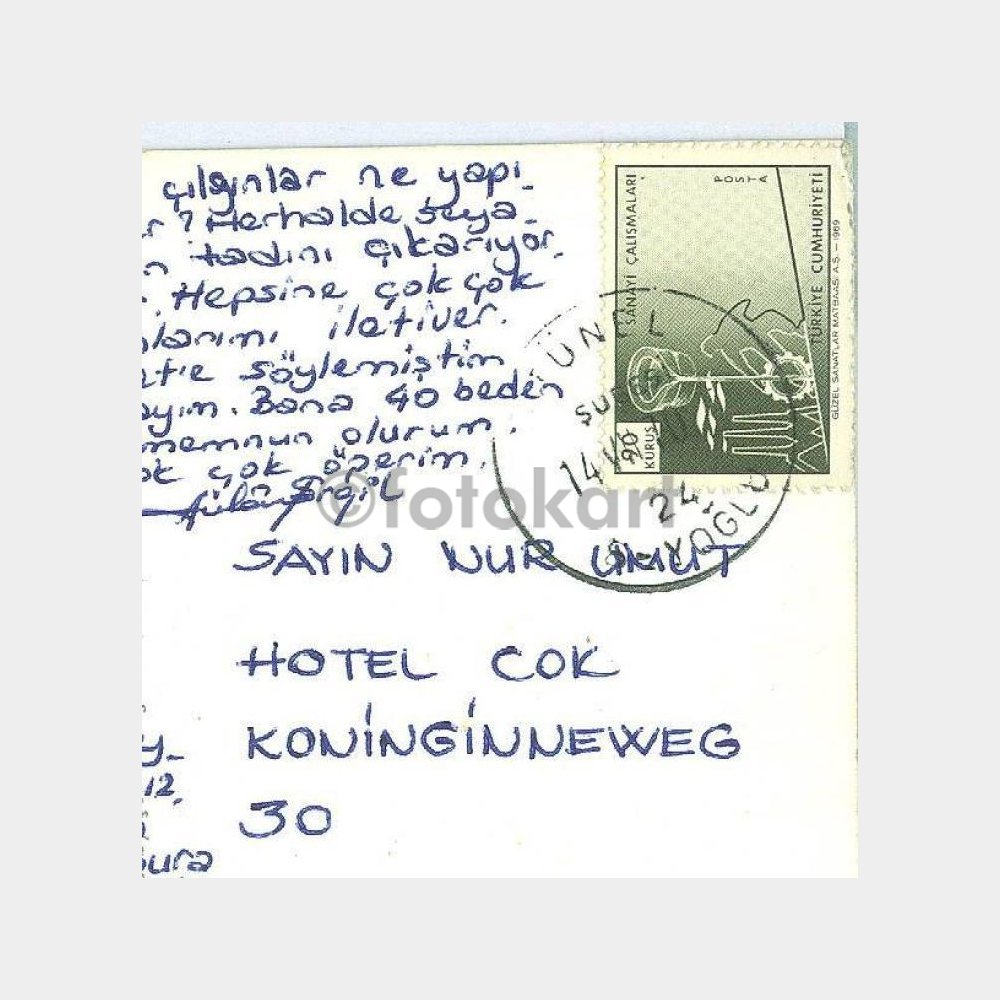 çılgınlar ne yapı-
r? Herhalde seya-
n tadını çıkarıyor.
. Hepsine çok çok
larımı iletiver.
söylemiştim
ayım. Bana 40 beden
memnun olurum.
ok çok öperim.
SAYIN NUR UMUT
HOTEL COK
KONİNGİNNEWEG
30
y-
12.
bura
POSTA
SANAYİ ÇALIŞMALARI
TÜRKİYE CUMHURİYETİ
GÜZEL SANATLAR MATBAASI A.Ş. - 1969
90
KURUŞ
TÜNEL
24
YOĞLU
©fotokart